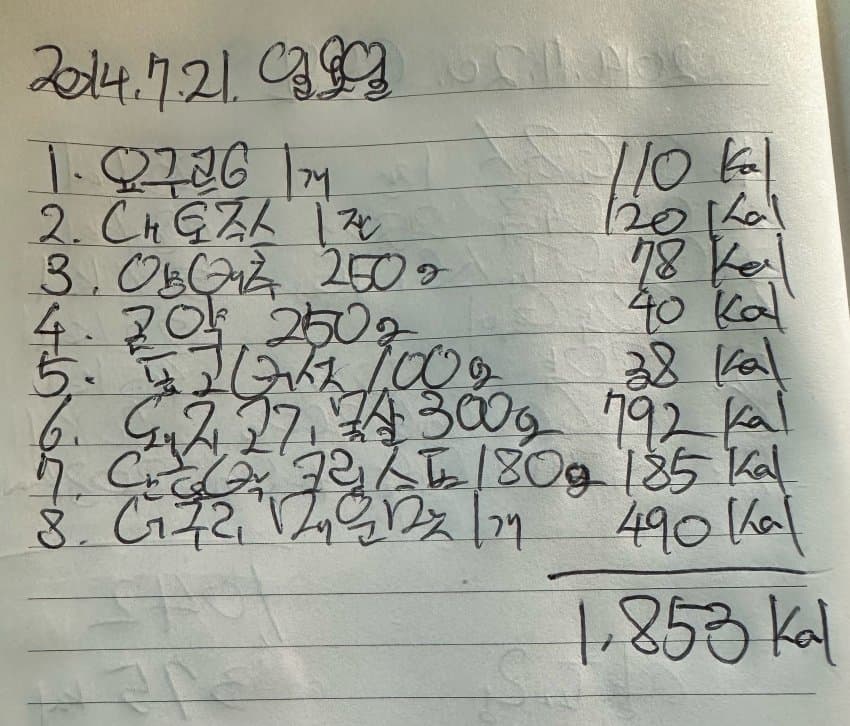 2014.7.21. 일요일
1. 요구르트 1개 110 Kal
2. 대토쥬스 1잔 120 Kal
3. 양배추 250g 78 Kal
4. 곤약 250g 40 Kal
5. 버섯 100g 38 Kal
6. 돼지고기, 목살 300g 792 Kal
7. 크림스프 180g 185 Kal
8. 너구리, 1개 490 Kal
1,853 Kal